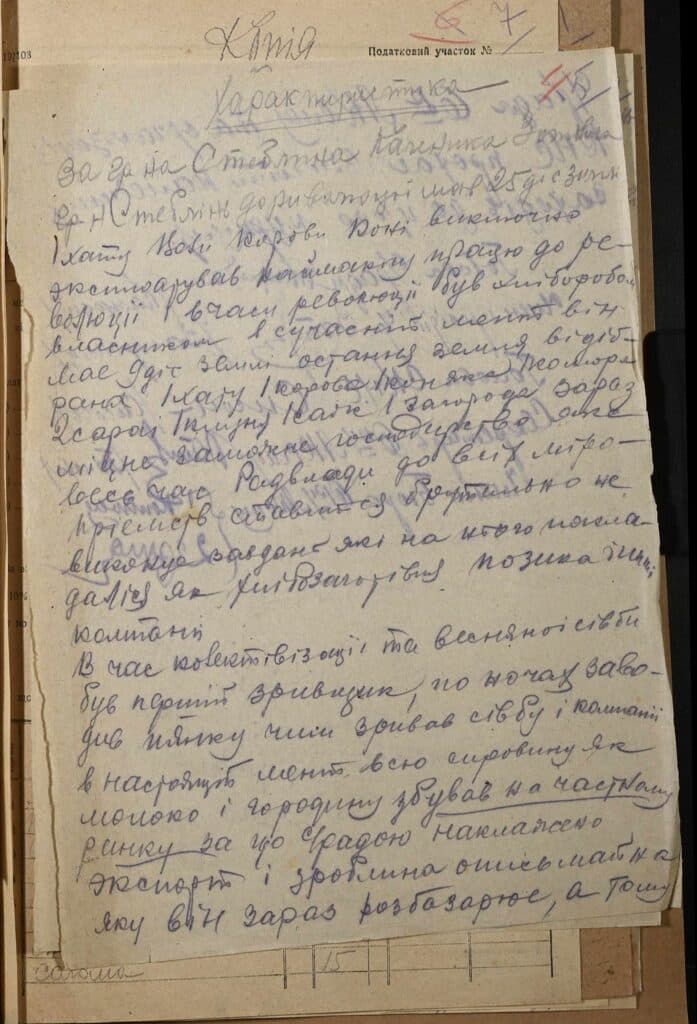 Копія
Податковий участок №
6 7
Характиристика
За гр на Стебліна
гр н Стеблін до революції мав 25 діс землі
1 хату Коні виключно
эксплоатував наймакну працю до ре-
волюції і вчаси революції був хліборобом
власником в сучасній мент він
має 9 діс землі остання земля відіб-
рана 1 хату 1 корова 1 коняка 1 комора
2 сараі 1 клуня 1 саж 1 загорода зараз
міцне заможне господарство
весь час Радвлади до всіх міро-
приємств ставится брутально не
виконує завдань які на нього покла-
далися як хлібозаготівля позика і інші
компанії
В час колективізації та весняної сівби
був перший зривщик, по ночах заво-
див пянку чим зривав сівбу і компанії
в настоящий мент всю сировину як
молоко і городину збував на частному
ринку за що с/радою наклажено
экспорт і зроблина опись майна
яку він зараз розбазарює, а тому
15